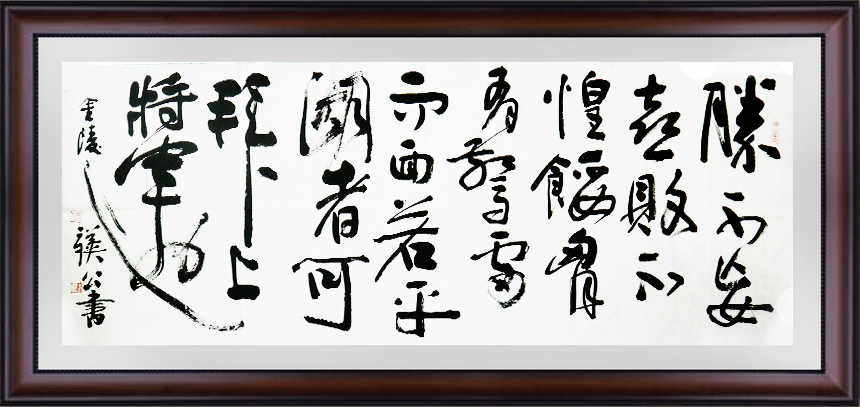 勝不妄
喜敗不
惶餒胷
有驚雷
而面若平
湖者可
拜上
將軍也
金陵
公書